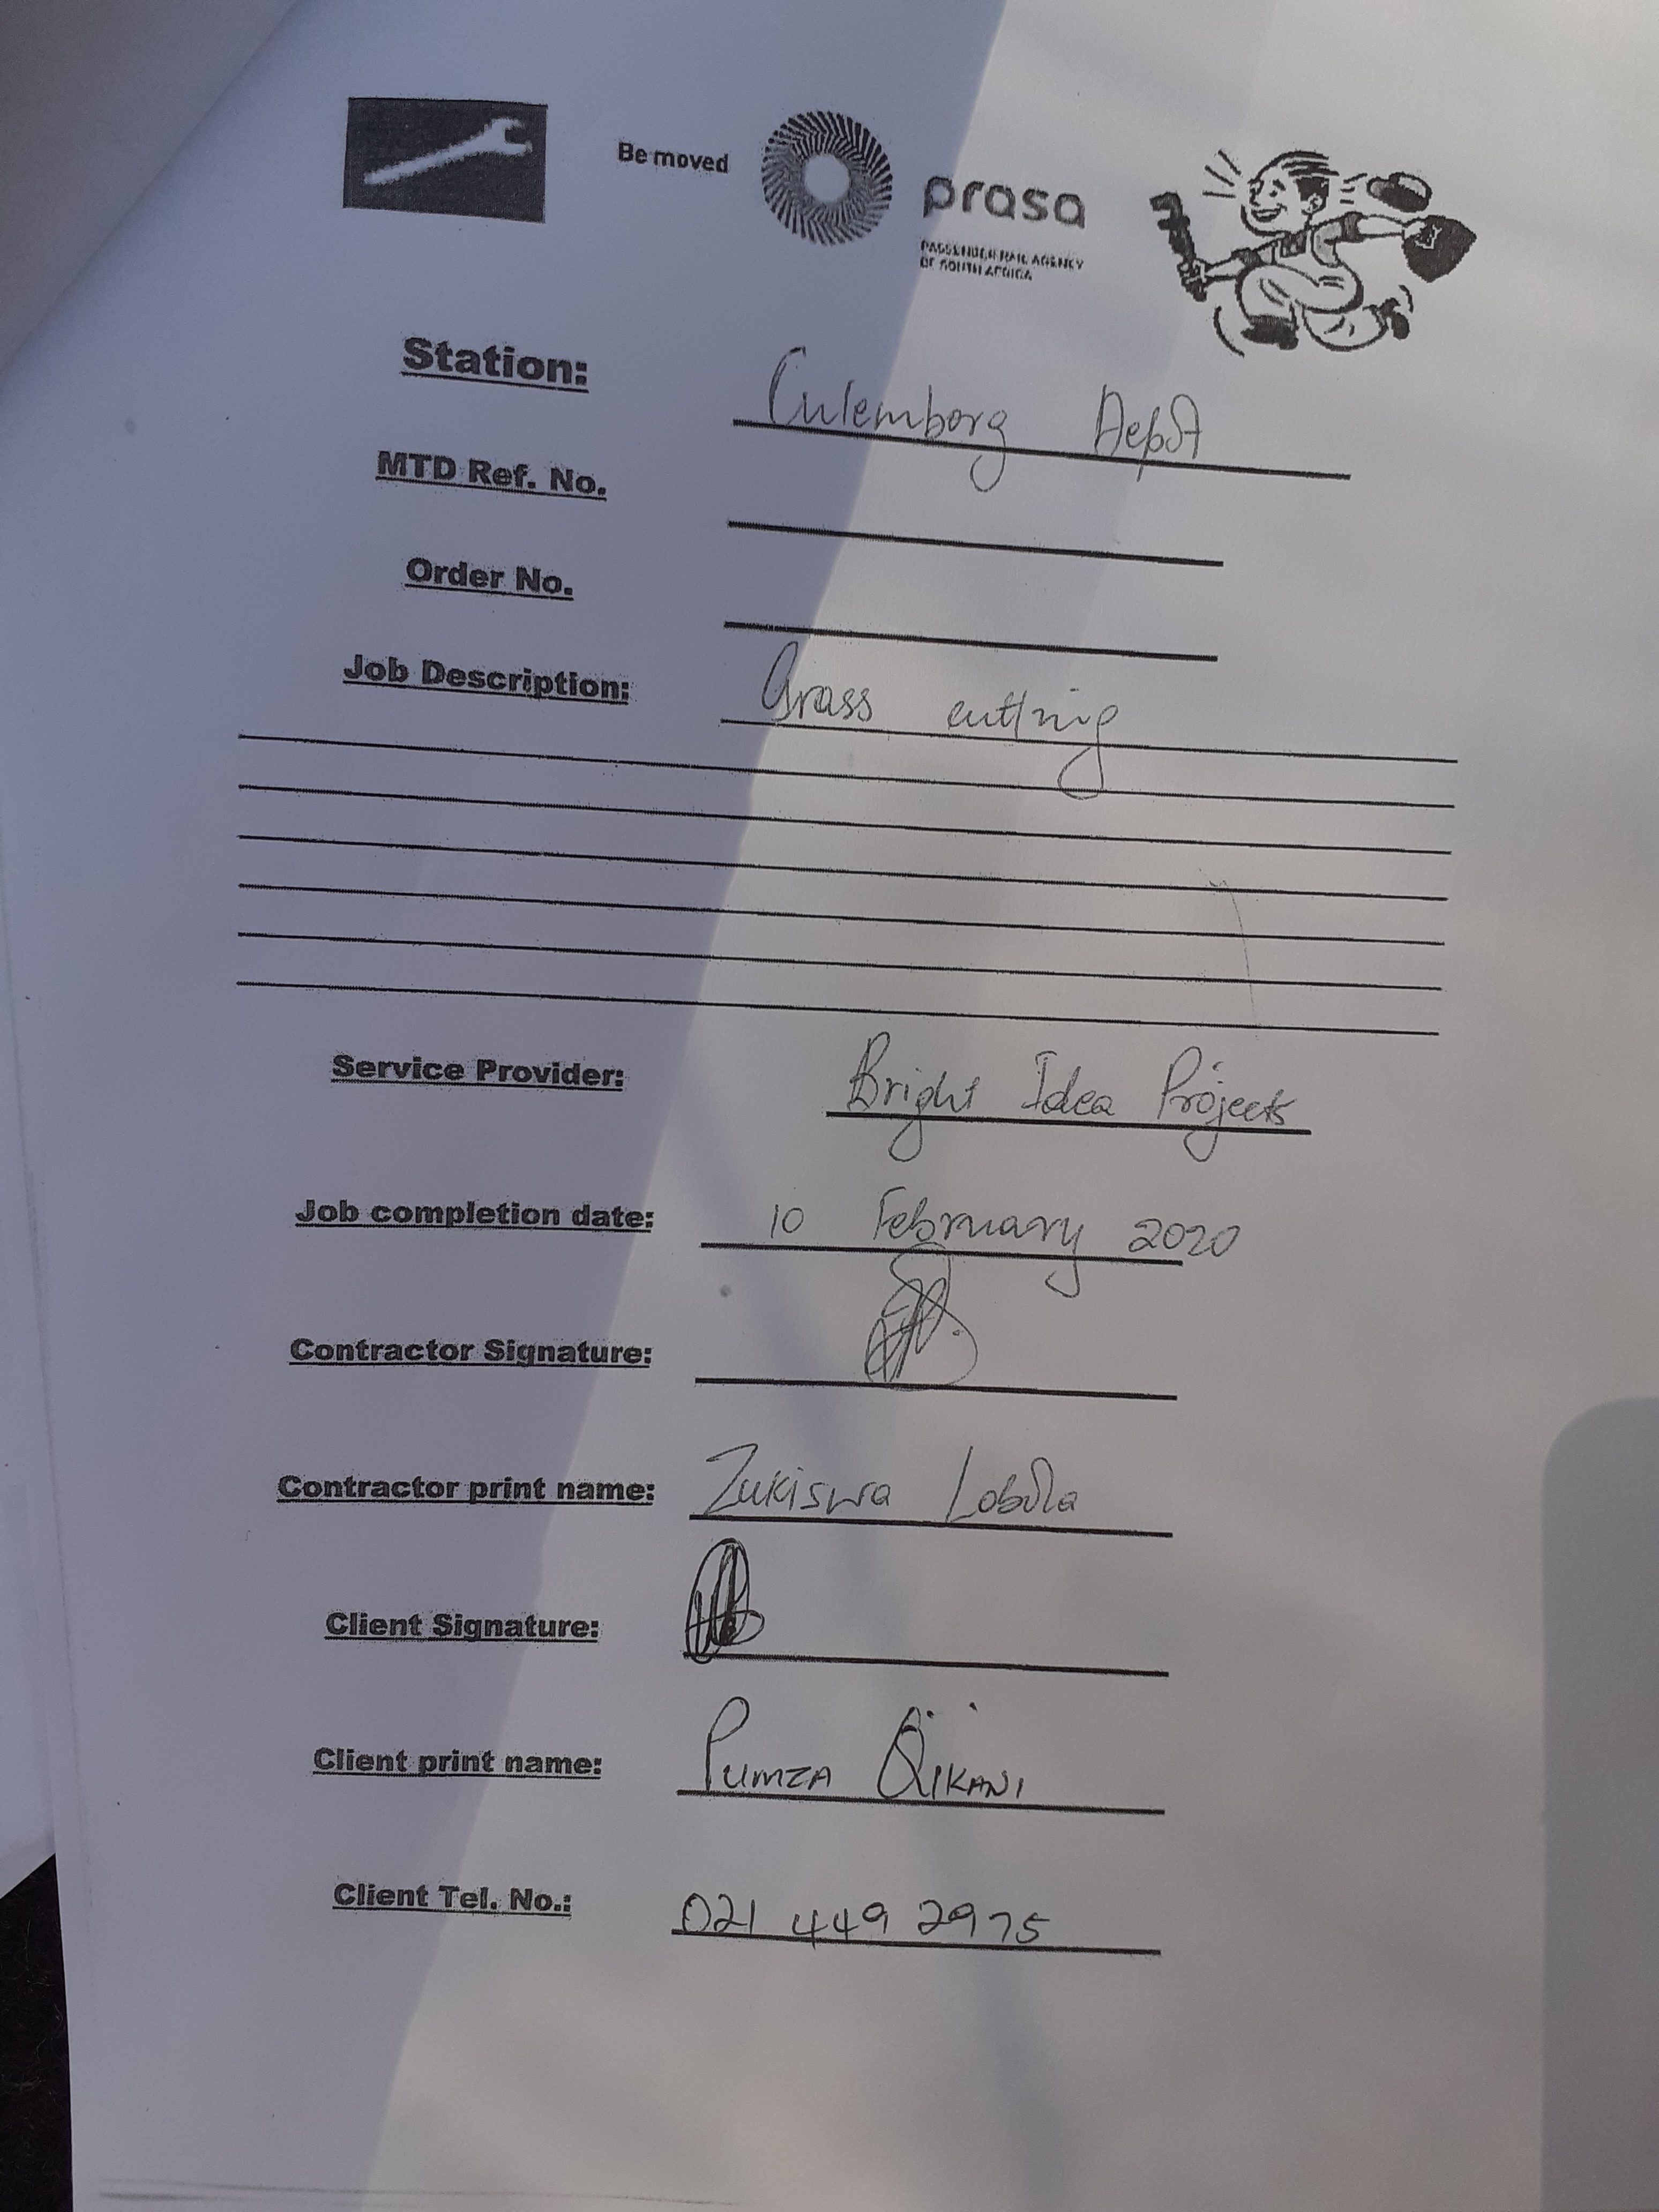 Be moved
prasa
PASSENGER RAIL AGENCY
OF SOUTH AFRICA
Station: Culemborg Depot
MTD Ref. No.
Order No.
Job Description: Grass cutting
Service Provider: Bright Idea Projects
Job completion date: 10 February 2020
Contractor Signature:
Contractor print name: Zukiswa Lobola
Client Signature:
Client print name: Pumza Qikani
Client Tel. No.: 021 449 2975